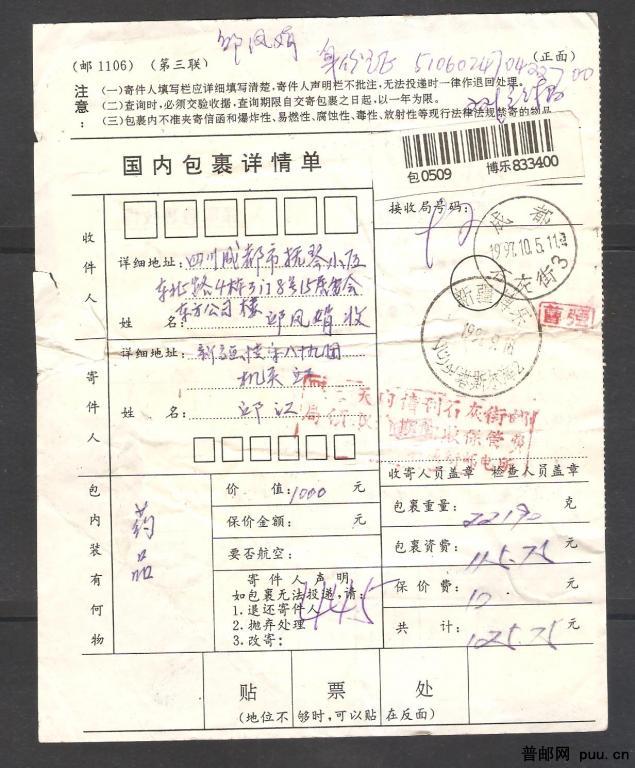 邹凤娟 身份证
(邮 1106) (第三联) (正面)
注意:
(一)寄件人填写栏应详细填写清楚,寄件人声明栏不批注,无法投递时一律作退回处理。
(二)查询时,必须交验收据,查询期限自交寄包裹之日起,以一年为限。
(三)包裹内不准夹寄信函和爆炸性、易燃性、腐蚀性、毒性、放射性等现行法律法规禁寄的物品
包0509 博乐833400
国内包裹详情单
接收局号码:
成都
1997.10.5.11
街3
收件人
详细地址: 四川成都市抚琴小区
东北路4栋3门8号
东方公司楼
姓名: 邹凤娟收
新疆博乐
寄件人
详细地址: 新疆博乐八十九团
机关
姓名: 邹江
天内请到石灰街
收保管
收寄人员盖章 检查人员盖章
包内装有何物
药品
价值: 1000 元
保价金额: 元
要否航空:
寄件人声明
如包裹无法投递,请:
1. 退还寄件人
2. 抛弃处理
3. 改寄:
445
包裹重量: 克
包裹资费: 115.75 元
保价费: 10 元
共计: 元
贴票处
(地位不够时,可以贴在反面)
普邮网 puu.cn